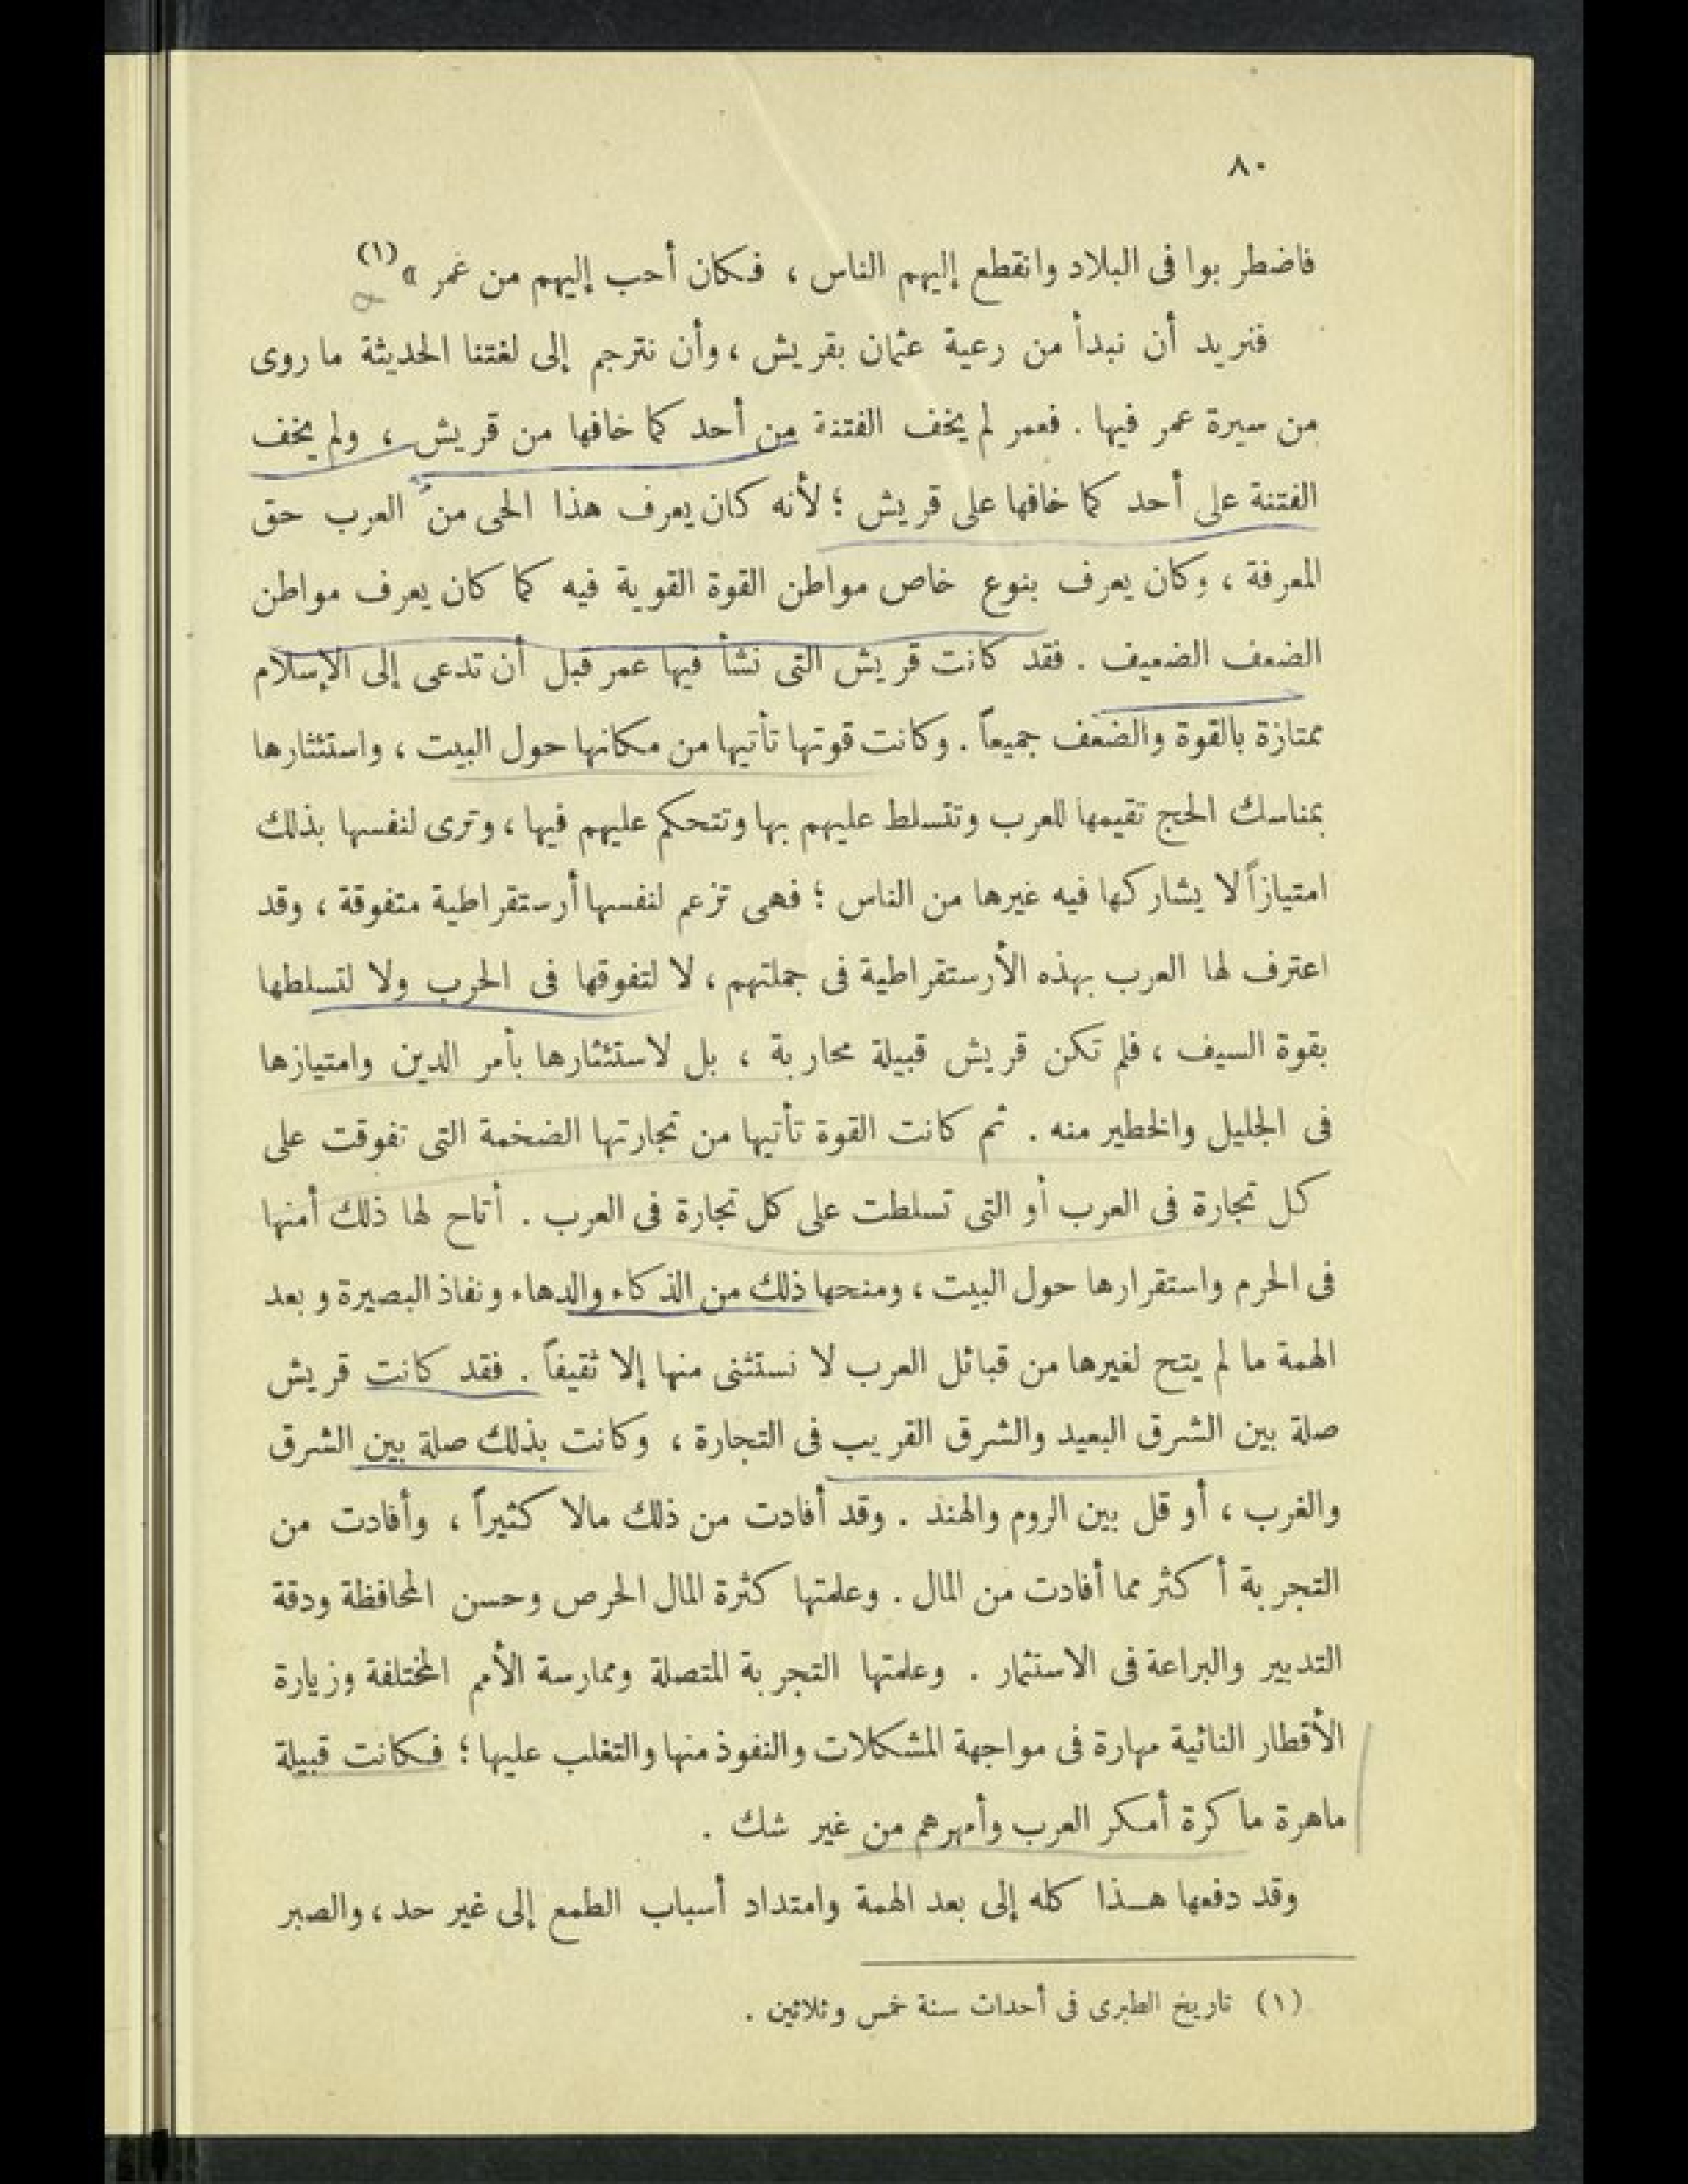 ٨٠
فاضطربوا فى البلاد وانقطع إليهم الناس ، فكان أحب إليهم من عمر » (١)
فنريد أن نبدأ من رعية عثمان بقريش ، وأن نترجم إلى لغتنا الحديثة ما روى
من سيرة عمر فيها . فعمر لم يخف الفتنة من أحد كما خافها من قريش ، ولم يخف
الفتنة على أحد كما خافها على قريش ؛ لأنه كان يعرف هذا الحى من العرب حق
المعرفة ، وكان يعرف بنوع خاص مواطن القوة القوية فيه كما كان يعرف مواطن
الضعف الضعيف . فقد كانت قريش التى نشأ فيها عمر قبل أن تدعى إلى الإسلام
ممتازة بالقوة والضعف جميعاً . وكانت قوتها تأتيها من مكانها حول البيت ، واستئثارها
بمناسك الحج تقيمها للعرب وتتسلط عليهم بها وتتحكم عليهم فيها ، وترى لنفسها بذلك
امتيازاً لا يشاركها فيه غيرها من الناس ؛ فهى تزعم لنفسها أرستقراطية متفوقة ، وقد
اعترف لها العرب بهذه الأرستقراطية فى جملتهم ، لا لتفوقها فى الحرب ولا لتسلطها
بقوة السيف ، فلم تكن قريش قبيلة محاربة ، بل لاستئثارها بأمر الدين وامتيازها
فى الجليل والخطير منه . ثم كانت القوة تأتيها من تجارتها الضخمة التى تفوقت على
كل تجارة فى العرب أو التى تسلطت على كل تجارة فى العرب . أتاح لها ذلك أمنها
فى الحرم واستقرارها حول البيت ، ومنحها ذلك من الذكاء والدهاء ونفاذ البصيرة وبعد
الهمة ما لم يتح لغيرها من قبائل العرب لا نستثنى منها إلا ثقيفاً . فقد كانت قريش
صلة بين الشرق البعيد والشرق القريب فى التجارة ، وكانت بذلك صلة بين الشرق
والغرب ، أو قل بين الروم والهند . وقد أفادت من ذلك مالا كثيراً ، وأفادت من
التجربة أكثر مما أفادت من المال . وعلمتها كثرة المال الحرص وحسن المحافظة ودقة
التدبير والبراعة فى الاستثمار . وعلمتها التجربة المتصلة وممارسة الأمم المختلفة وزيارة
الأقطار النائية مهارة فى مواجهة المشكلات والنفوذ منها والتغلب عليها ؛ فكانت قبيلة
ماهرة ماكرة أمكر العرب وأمهرهم من غير شك .
وقد دفعها هذا كله إلى بعد الهمة وامتداد أسباب الطمع إلى غير حد ، والصبر
(١) تاريخ الطبرى فى أحداث سنة خمس وثلاثين .